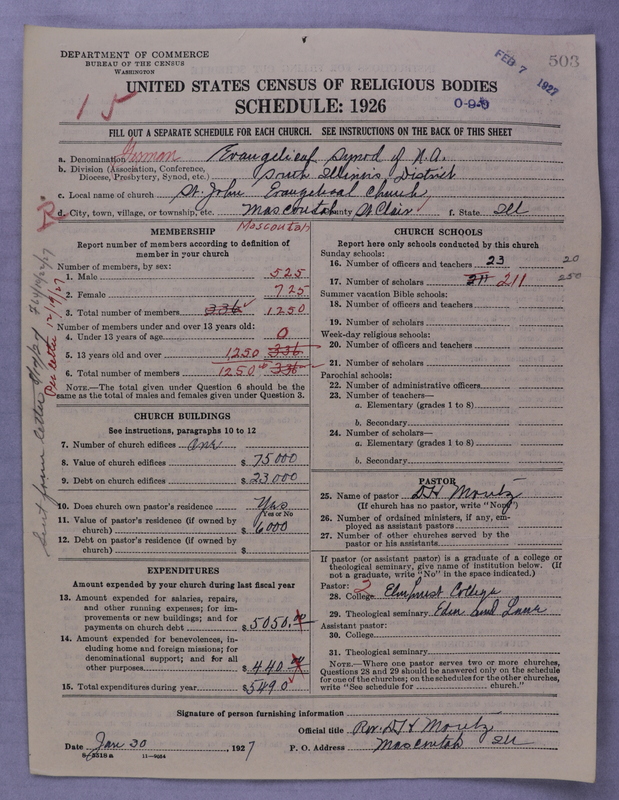 DEPARTMENT OF COMMERCE
BUREAU OF THE CENSUS
WASHINGTON
FEB 7 1927
503
UNITED STATES CENSUS OF RELIGIOUS BODIES
15
SCHEDULE: 1926
0-9-5
FILL OUT A SEPARATE SCHEDULE FOR EACH CHURCH. SEE INSTRUCTIONS ON THE BACK OF THIS SHEET
a. Denomination German Evangelical Synod of N.A.
b. Division (Association, Conference, Diocese, Presbytery, Synod, etc.) South Illinois District
c. Local name of church St. John Evangelical Church
R d. City, town, village, or township, etc. Mascoutah County St Clair f. State Ill
Mascoutah
MEMBERSHIP
Report number of members according to definition of
member in your church
Number of members, by sex:
1. Male 525
2. Female 725
3. Total number of members 336 1250
Number of members under and over 13 years old:
4. Under 13 years of age 0
5. 13 years old and over 1250 336
6. Total number of members 1250 336
NOTE.—The total given under Question 6 should be the
same as the total of males and females given under Question 3.
CHURCH BUILDINGS
See instructions, paragraphs 10 to 12
7. Number of church edifices One
8. Value of church edifices $ 75000
9. Debt on church edifices $ 23,000
10. Does church own pastor's residence? Yes
Yes or No
11. Value of pastor's residence (if owned by
church) $ 6000
12. Debt on pastor's residence (if owned by
church) $
EXPENDITURES
Amount expended by your church during last fiscal year
13. Amount expended for salaries, repairs,
and other running expenses; for im-
provements or new buildings; and for
payments on church debt $ 5050.00
14. Amount expended for benevolences, in-
cluding home and foreign missions; for
denominational support; and for all
other purposes $ 440.00
15. Total expenditures during year $ 5490
CHURCH SCHOOLS
Report here only schools conducted by this church
Sunday schools:
16. Number of officers and teachers 23 20
17. Number of scholars 211 211 250
Summer vacation Bible schools:
18. Number of officers and teachers
19. Number of scholars
Week-day religious schools:
20. Number of officers and teachers
21. Number of scholars
Parochial schools:
22. Number of administrative officers
23. Number of teachers—
a. Elementary (grades 1 to 8)
b. Secondary
24. Number of scholars—
a. Elementary (grades 1 to 8)
b. Secondary
PASTOR
25. Name of pastor D H Moritz
(If church has no pastor, write "None")
26. Number of ordained ministers, if any, em-
ployed as assistant pastors
27. Number of other churches served by the
pastor or his assistants
If pastor (or assistant pastor) is a graduate of a college or
theological seminary, give name of institution below. (If
not a graduate, write "No" in the space indicated.)
Pastor: 2
28. College Elmhurst College
29. Theological seminary Eden and Lane
Assistant pastor:
30. College
31. Theological seminary
NOTE.—Where one pastor serves two or more churches,
Questions 28 and 29 should be answered only on the schedule
for one of the churches; on the schedules for the other churches,
write "See schedule for church."
Signature of person furnishing information
Official title Rev. D H Moritz
Date Jan 30, 1927 P. O. Address Mascoutah Ill
8-5318a 11-9054
Sent form letter
Per letter 12/19/27